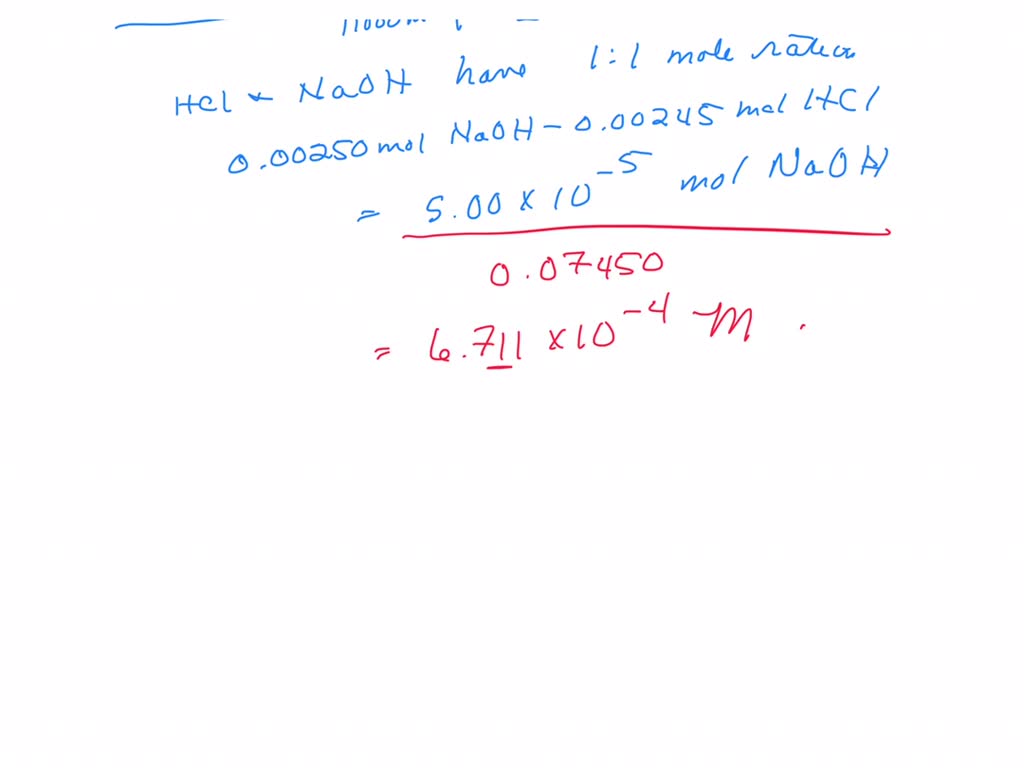 HCl & NaOH have 1:1 mole ratio
0.00250 mol NaOH - 0.00245 mol HCl
= 5.00 x 10^-5 mol NaOH
0.07450
= 6.711 x 10^-4 M .